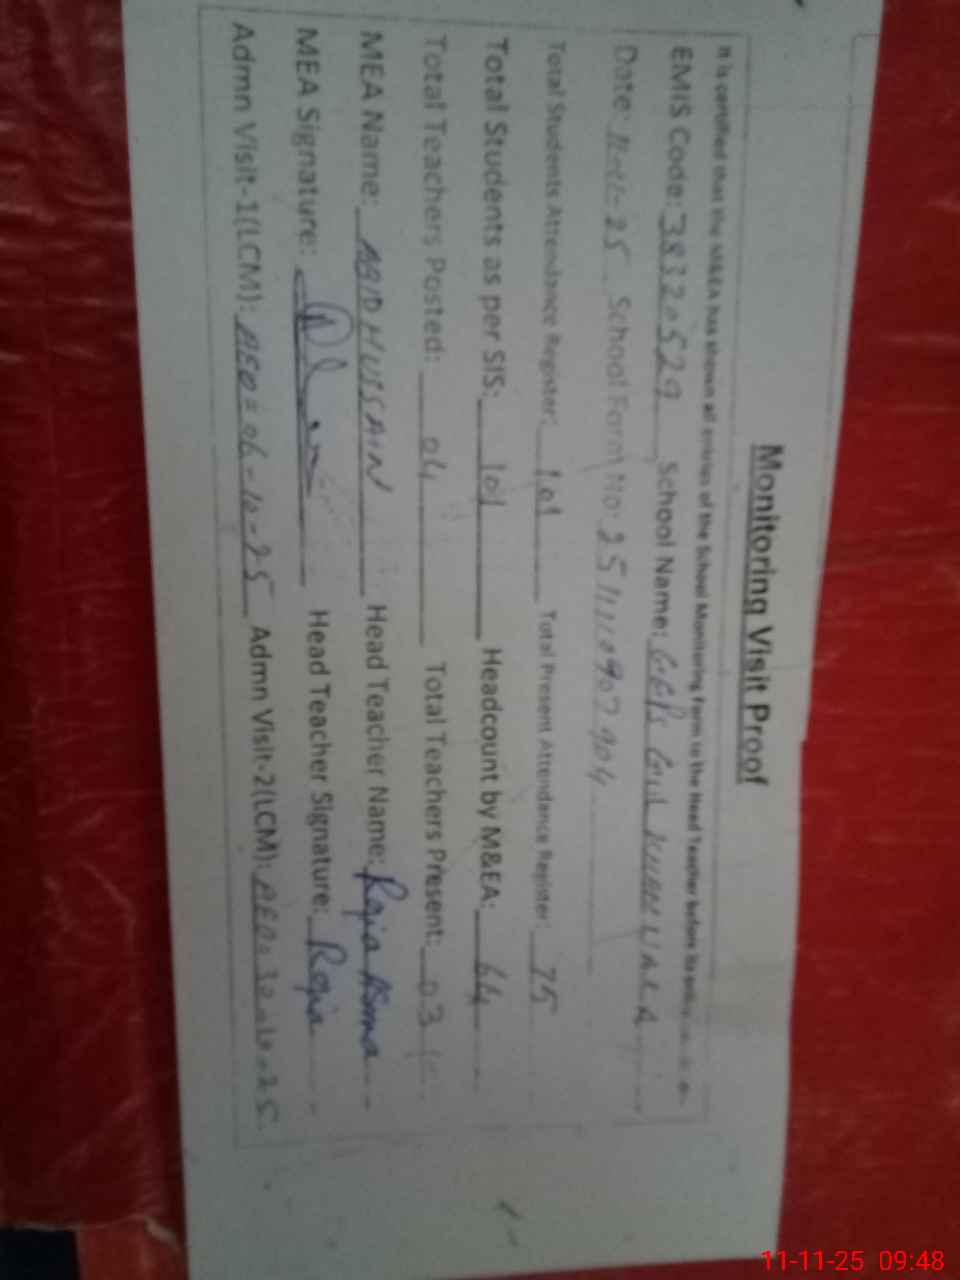 Monitoring Visit Proof
It is certified that the M&EA has shown all entries of the School Monitoring Form to the Head Teacher before
EMIS Code: 38320529 School Name: GGPS Gul KHAN WALA
Date: 11-11-25 School Form No: 251110907904
Total Students Attendance Register: 101 Total Present Attendance Register: 75
Total Students as per SIS: 101 Headcount by M&EA: 64
Total Teachers Posted: 04 Total Teachers Present: 03
MEA Name: ABID HUSSAIN Head Teacher Name: Rojia Asma
MEA Signature: Head Teacher Signature: Rojia
Admn Visit-1(LCM): AEO = 06-10-25 Admn Visit-2(LCM): AEO = 30-10-25
11-11-25 09:48